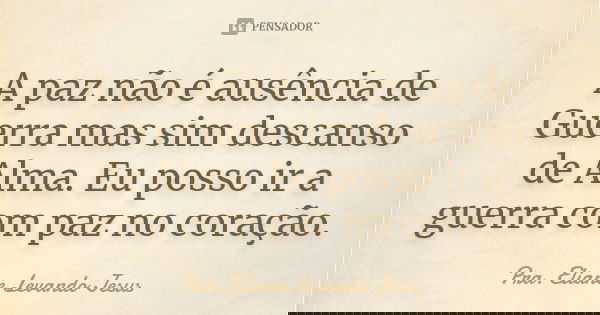 PENSADOR
A paz não é ausência de
Guerra mas sim descanso
de Alma. Eu posso ir a
guerra com paz no coração.
Pra. Eliane Levando Jesus